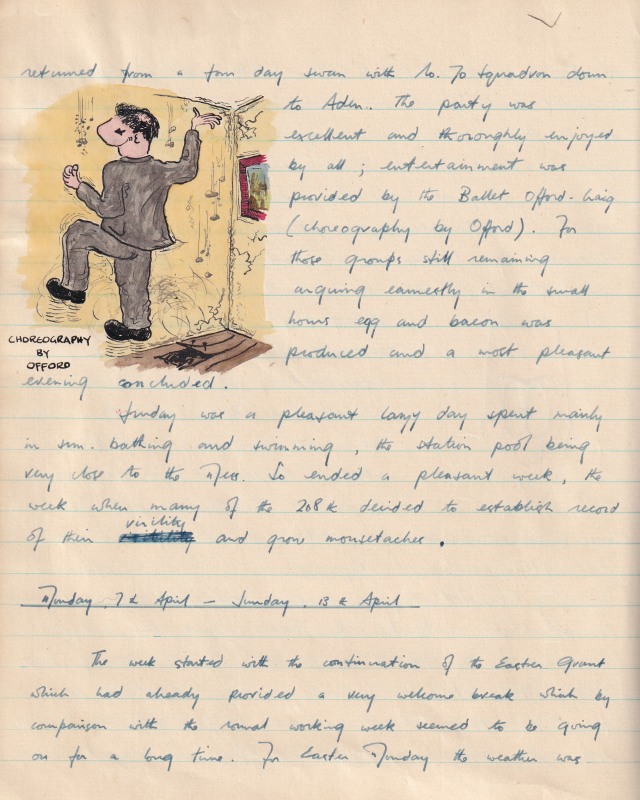 returned from a four day swan with No. 70 Squadron down
to Aden. The party was
excellent and thoroughly enjoyed
by all ; entertainment was
provided by the Ballet Offord-Craig
(choreography by Offord). For
those groups still remaining
arguing earnestly in the small
hours egg and bacon was
produced and a most pleasant
evening concluded.
CHOREOGRAPHY
BY
OFFORD
Sunday was a pleasant lazy day spent mainly
in sun-bathing and swimming, the station pool being
very close to the Mess. So ended a pleasant week, the
week when many of the 208 decided to establish record
of their virility and grow moustaches.
Monday, 7th April — Sunday, 13th April
The week started with the continuation of the Easter Grant
which had already provided a very welcome break which by
comparison with the normal working week seemed to be going
on for a long time. For Easter Monday the weather was